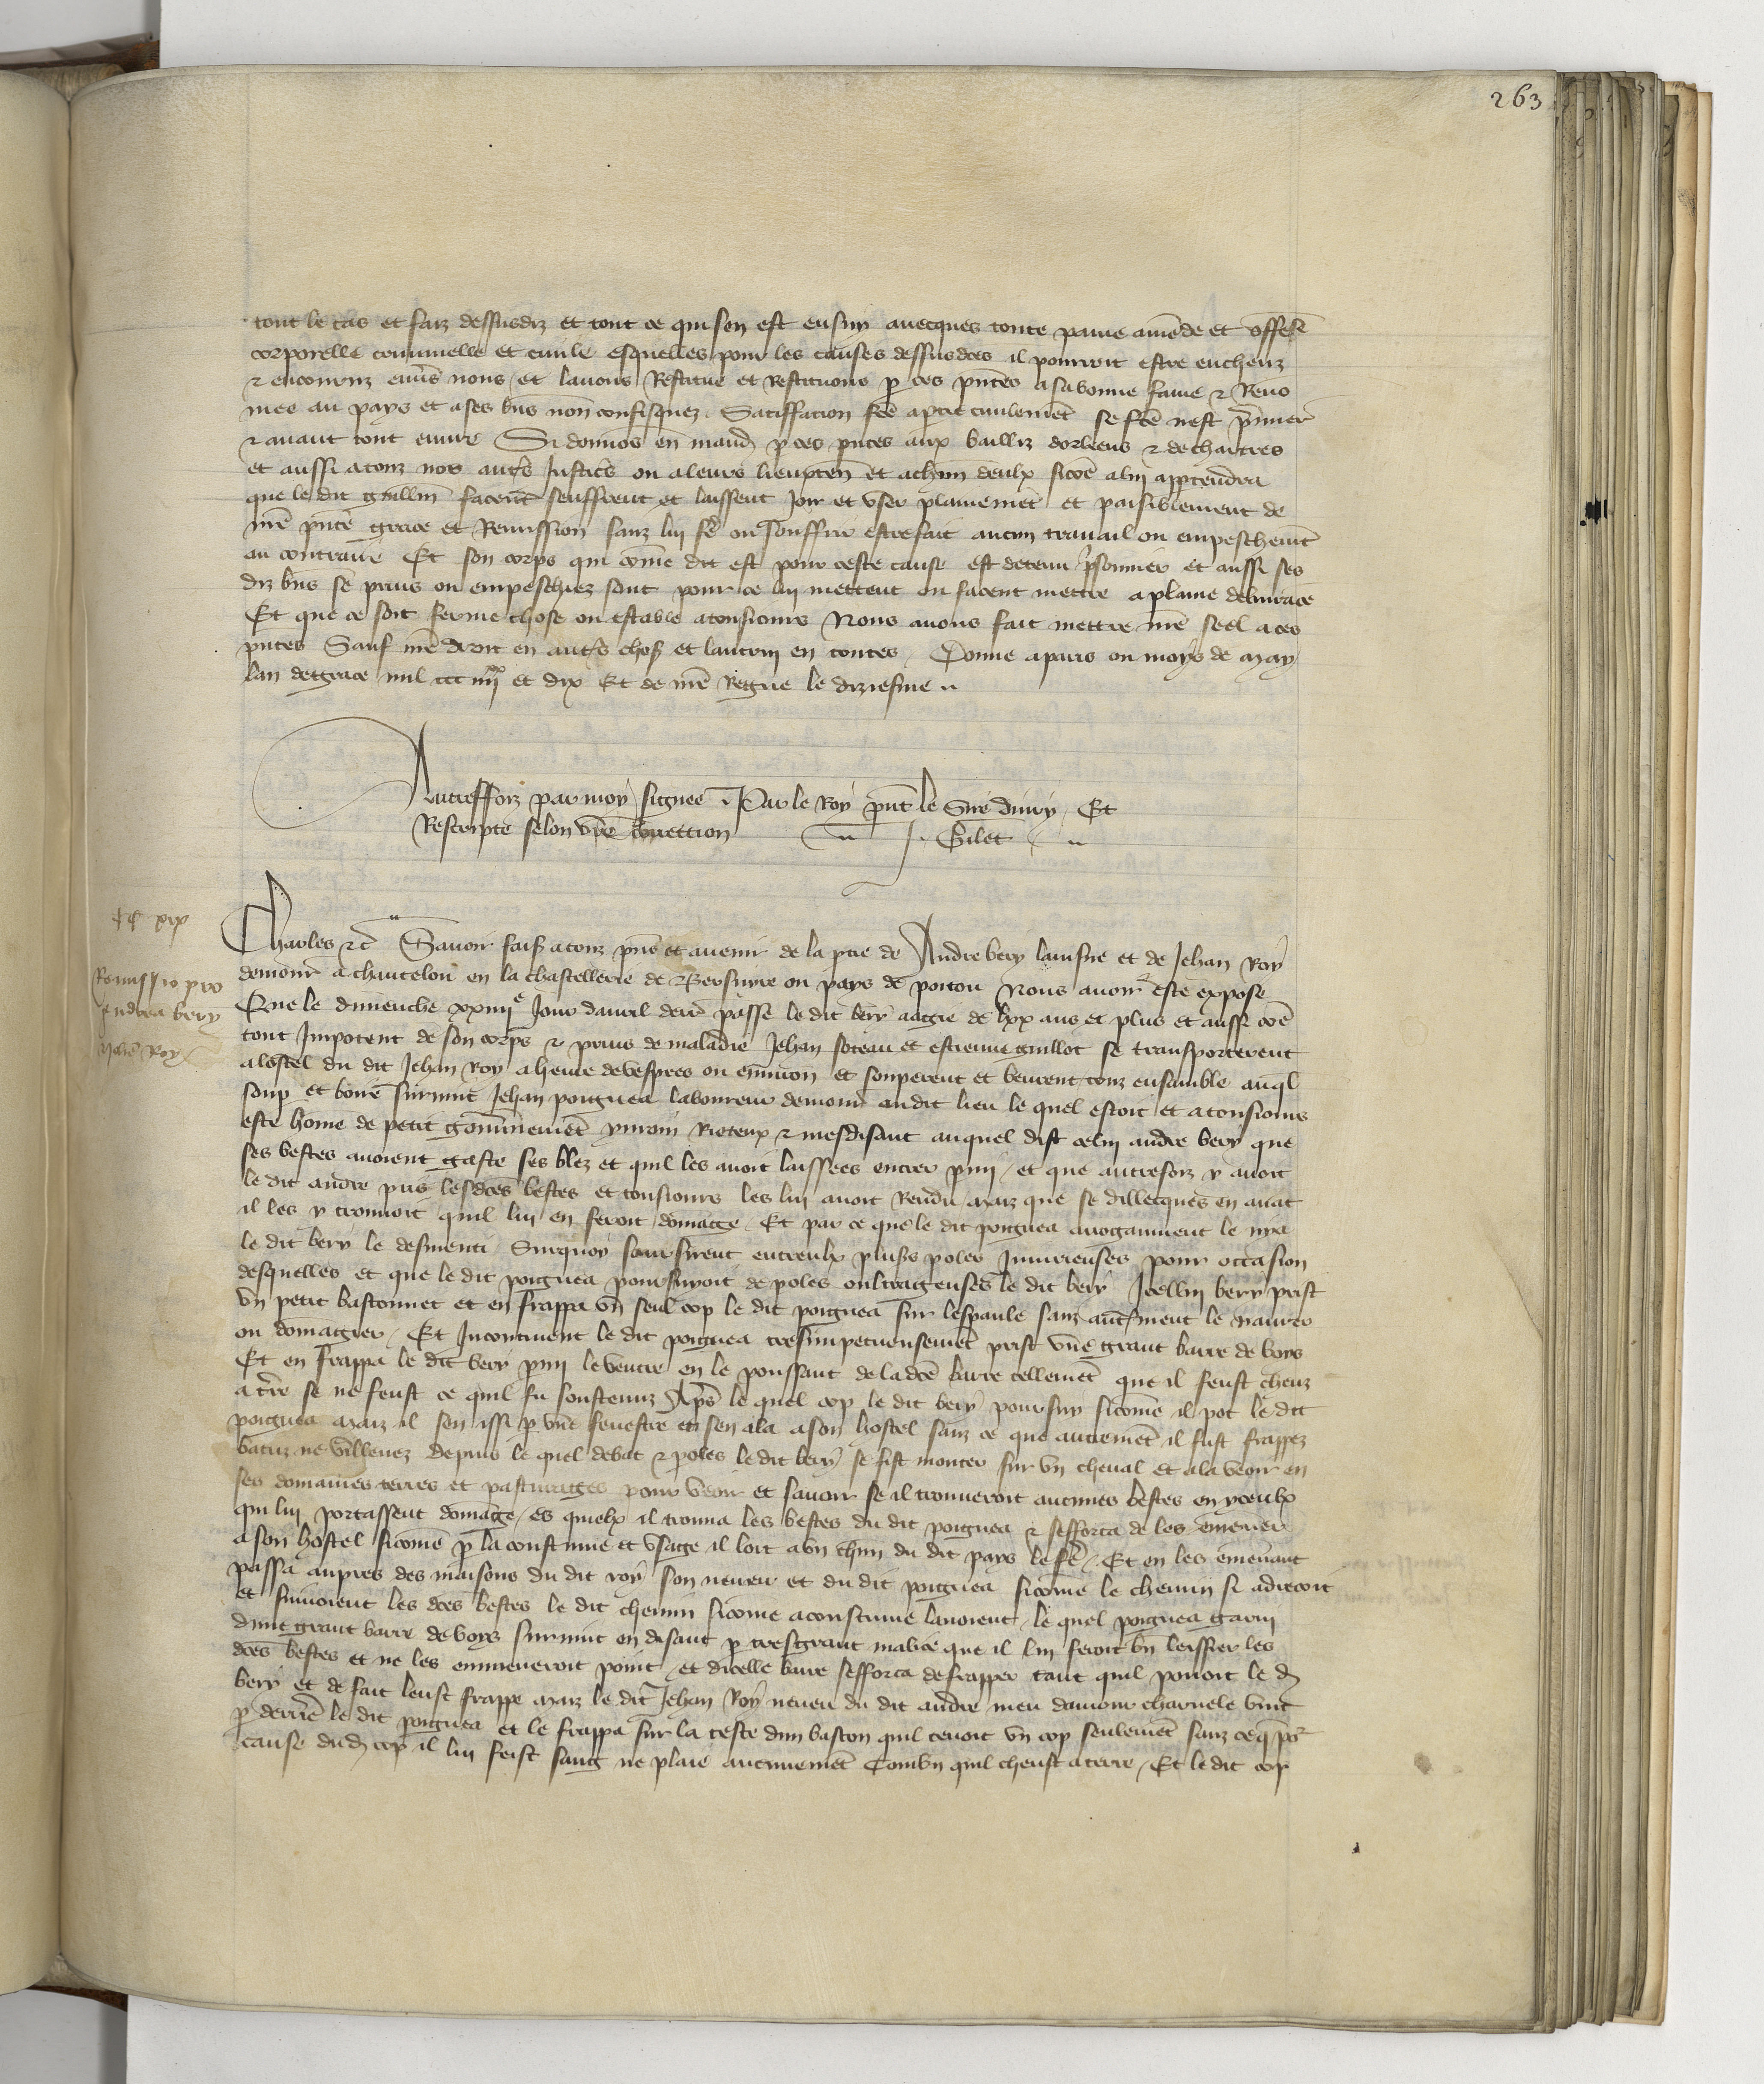 263
tout le cas et faiz dessusdiz et tout ce qui sen est ensuy avecques toute paine amēde et offēse
corporelle criminelle et civile esquelles pour les causes dessusdčes il pourroit estre encheuz
⁊ encouruz envs̄ nous et lavons Restitue et Restituons p ces pñtes a sa bonne fame ⁊ Reno
mee au pays et a ses bñs non confisquez. Satiffacion fčē a ptie civilemēt se fčē nest p̄mier
⁊ avant tout euvre Si donnōs en mand p ces pñtes aux bailliz dorliens ⁊ de chartres
et aussi a touz noz autr̄s Justicrs̄ ou a leurs lieuxten̄ et a chūn deulx sicōe a lui apptendra
que le dit guillm̄ facent seuffrent et laissent Joir et user plainemēt et paisiblement de
nrē pñte grace et Remission sanz lui fr̄e ou souffrir estre fait aucun travail ou empeschemēt
au contraire Et son corps qui cōme dit est pour ceste cause est detenu p̄sonnier et aussi ses
diz bñs se prins ou empeschiez sont pour ce lui mettent ou facent mettre a plaine delivrāce
Et que ce soit ferme chose ou estable a tousjours Nous avons fait mettre nrē seel a ces
pñtes Sauf nrē droit en autrs̄ choses et lautrui en toutes Donne a paris ou moys de may
lan de grace mil ccc iiii xx et dix Et de nrē Regne le diziesme
Autreffoiz par moy signee Par le Roy pñt le Sire divry Et
Rescripte selon vrē correccion J. Gilet
cc xix
Remissio pro
Andrea bery
Jehan Roy
Charles ⁊c Savoir faiss a touz pñs et avenir de la ptie de Andre bery laisne et de Jehan Roy
demour̄ a chantelou en la chastellerie de Bersuyre ou pays de poitou Nous avoir este expose
Que le dimenche xxiiii e Jour davril derñ passe le dit bery aagie de lxx ans et plus et aussi cōe
tout Impotent de son corps ⁊ prins de maladie Jehan soteau et estienne guillot se transporterent
a lostel du dit Jehan Roy a heure de vespres ou environ et souperent et beurent touz ensamble auql̄
soup et boiv̄e survint Jehan poignea laboureur demour̄ ou dit lieu le quel estoit et a tousjours
este hōme de petit gouvernemēt yvroin Rioteux ⁊ mesdisant auquel dist celui andre bery que
ses bestes avoient gaste ses blez et quil les avoit laissees entrer pmi et que autresfoiz y avoit
le dit andre prins lesdčes bestes et tousjours les lui avoit Rendu maiz que se dillecques en avāt
il les y trouvoit quil lui en feroit domage Et par ce que le dit poignea arrogamment le nya
le dit bery le desmenti Surquoy sourdirent entreulx plusrs̄ poles Injurieuses pour occasion
desquelles et que le dit poignea poursuyvoit de poles oultrageuses le dit bery Icellui bery prist
un petit bastonnet et en frappa un seul cop le dit poignea sur lespaule sanz autremēt le navrer
ou domagier Et Incontinent le dit poignea tresimpetueusemēt prist une grant barre de boys
Et en frappa le dit bery pmi le ventre en le poussant de la dčē barre tellemēt que il feust cheuz
a trē se ne feust ce quil fu soustenuz Aps̄ le quel cop le dit bery poursuy sicōme il pot le dit
poignea maiz il sen issi p une fenestre et sen ala a son hostel sanz ce que autremēt il fust frappez
batuz ne villenez depuis le quel debat ⁊ poles le dit bery se fist monter sur un cheval et ala veoir en
ses domaines terres et pasturages pour veoir et savoir se il trouveroit aucunes bestes en yceulx
qui lui portassent domage es quielx il trouva les bestes du dit poignea ⁊ sefforca de les emener
a son hostel sicōme p la coustume et usage il loit a un chūn du dit pays le fr̄e Et en les emenant
passa aupres des maisons du dit roy son neveu et du dit poignea sicōme le chemin si adrecoit
et suivoient les dčes bestes le dit chemin sicōme acoustume lavoient le quel poignea garni
dune grant barre de boys survint en disant p tresgrant malice que il lui feroit bn̄ leissier les
dčes bestes et ne les enmeneroit point et dicelle barre sefforca de frapper tant quil povoit le d
bery et de fait leust frappe maiz le dit Jehan Roy neveu du dit andre meu damour charnele vint
p derrē le dit poignea et le frappa sur la teste dun baston quil tenoit un cop seulemēt sanz ce q̄ por
cause dud cop il lui feist sang ne plaie aucunemēt Combn̄ quil cheust a terre Et le dit cop